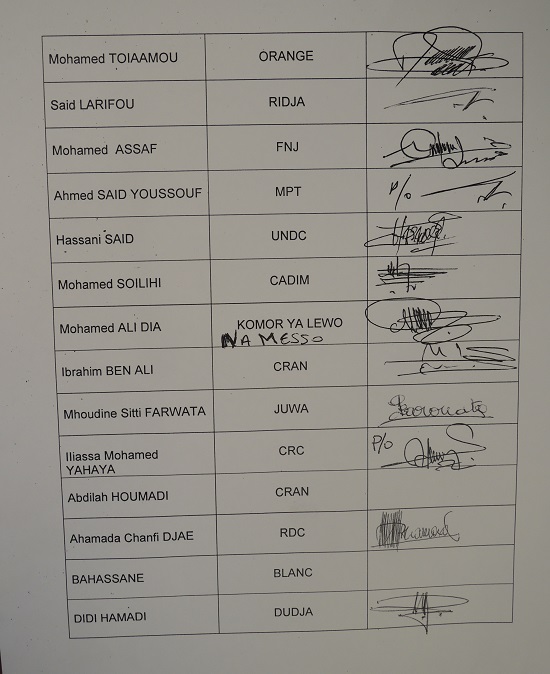 Mohamed TOIAAMOU ORANGE
Said LARIFOU RIDJA
Mohamed ASSAF FNJ
Ahmed SAID YOUSSOUF MPT P/o
Hassani SAID UNDC
Mohamed SOILIHI CADIM
Mohamed ALI DIA KOMOR YA LEWO
NA MESSO
Ibrahim BEN ALI CRAN
Mhoudine Sitti FARWATA JUWA
Iliassa Mohamed CRC P/o
YAHAYA
Abdilah HOUMADI CRAN
Ahamada Chanfi DJAE RDC
BAHASSANE BLANC
DIDI HAMADI DUDJA